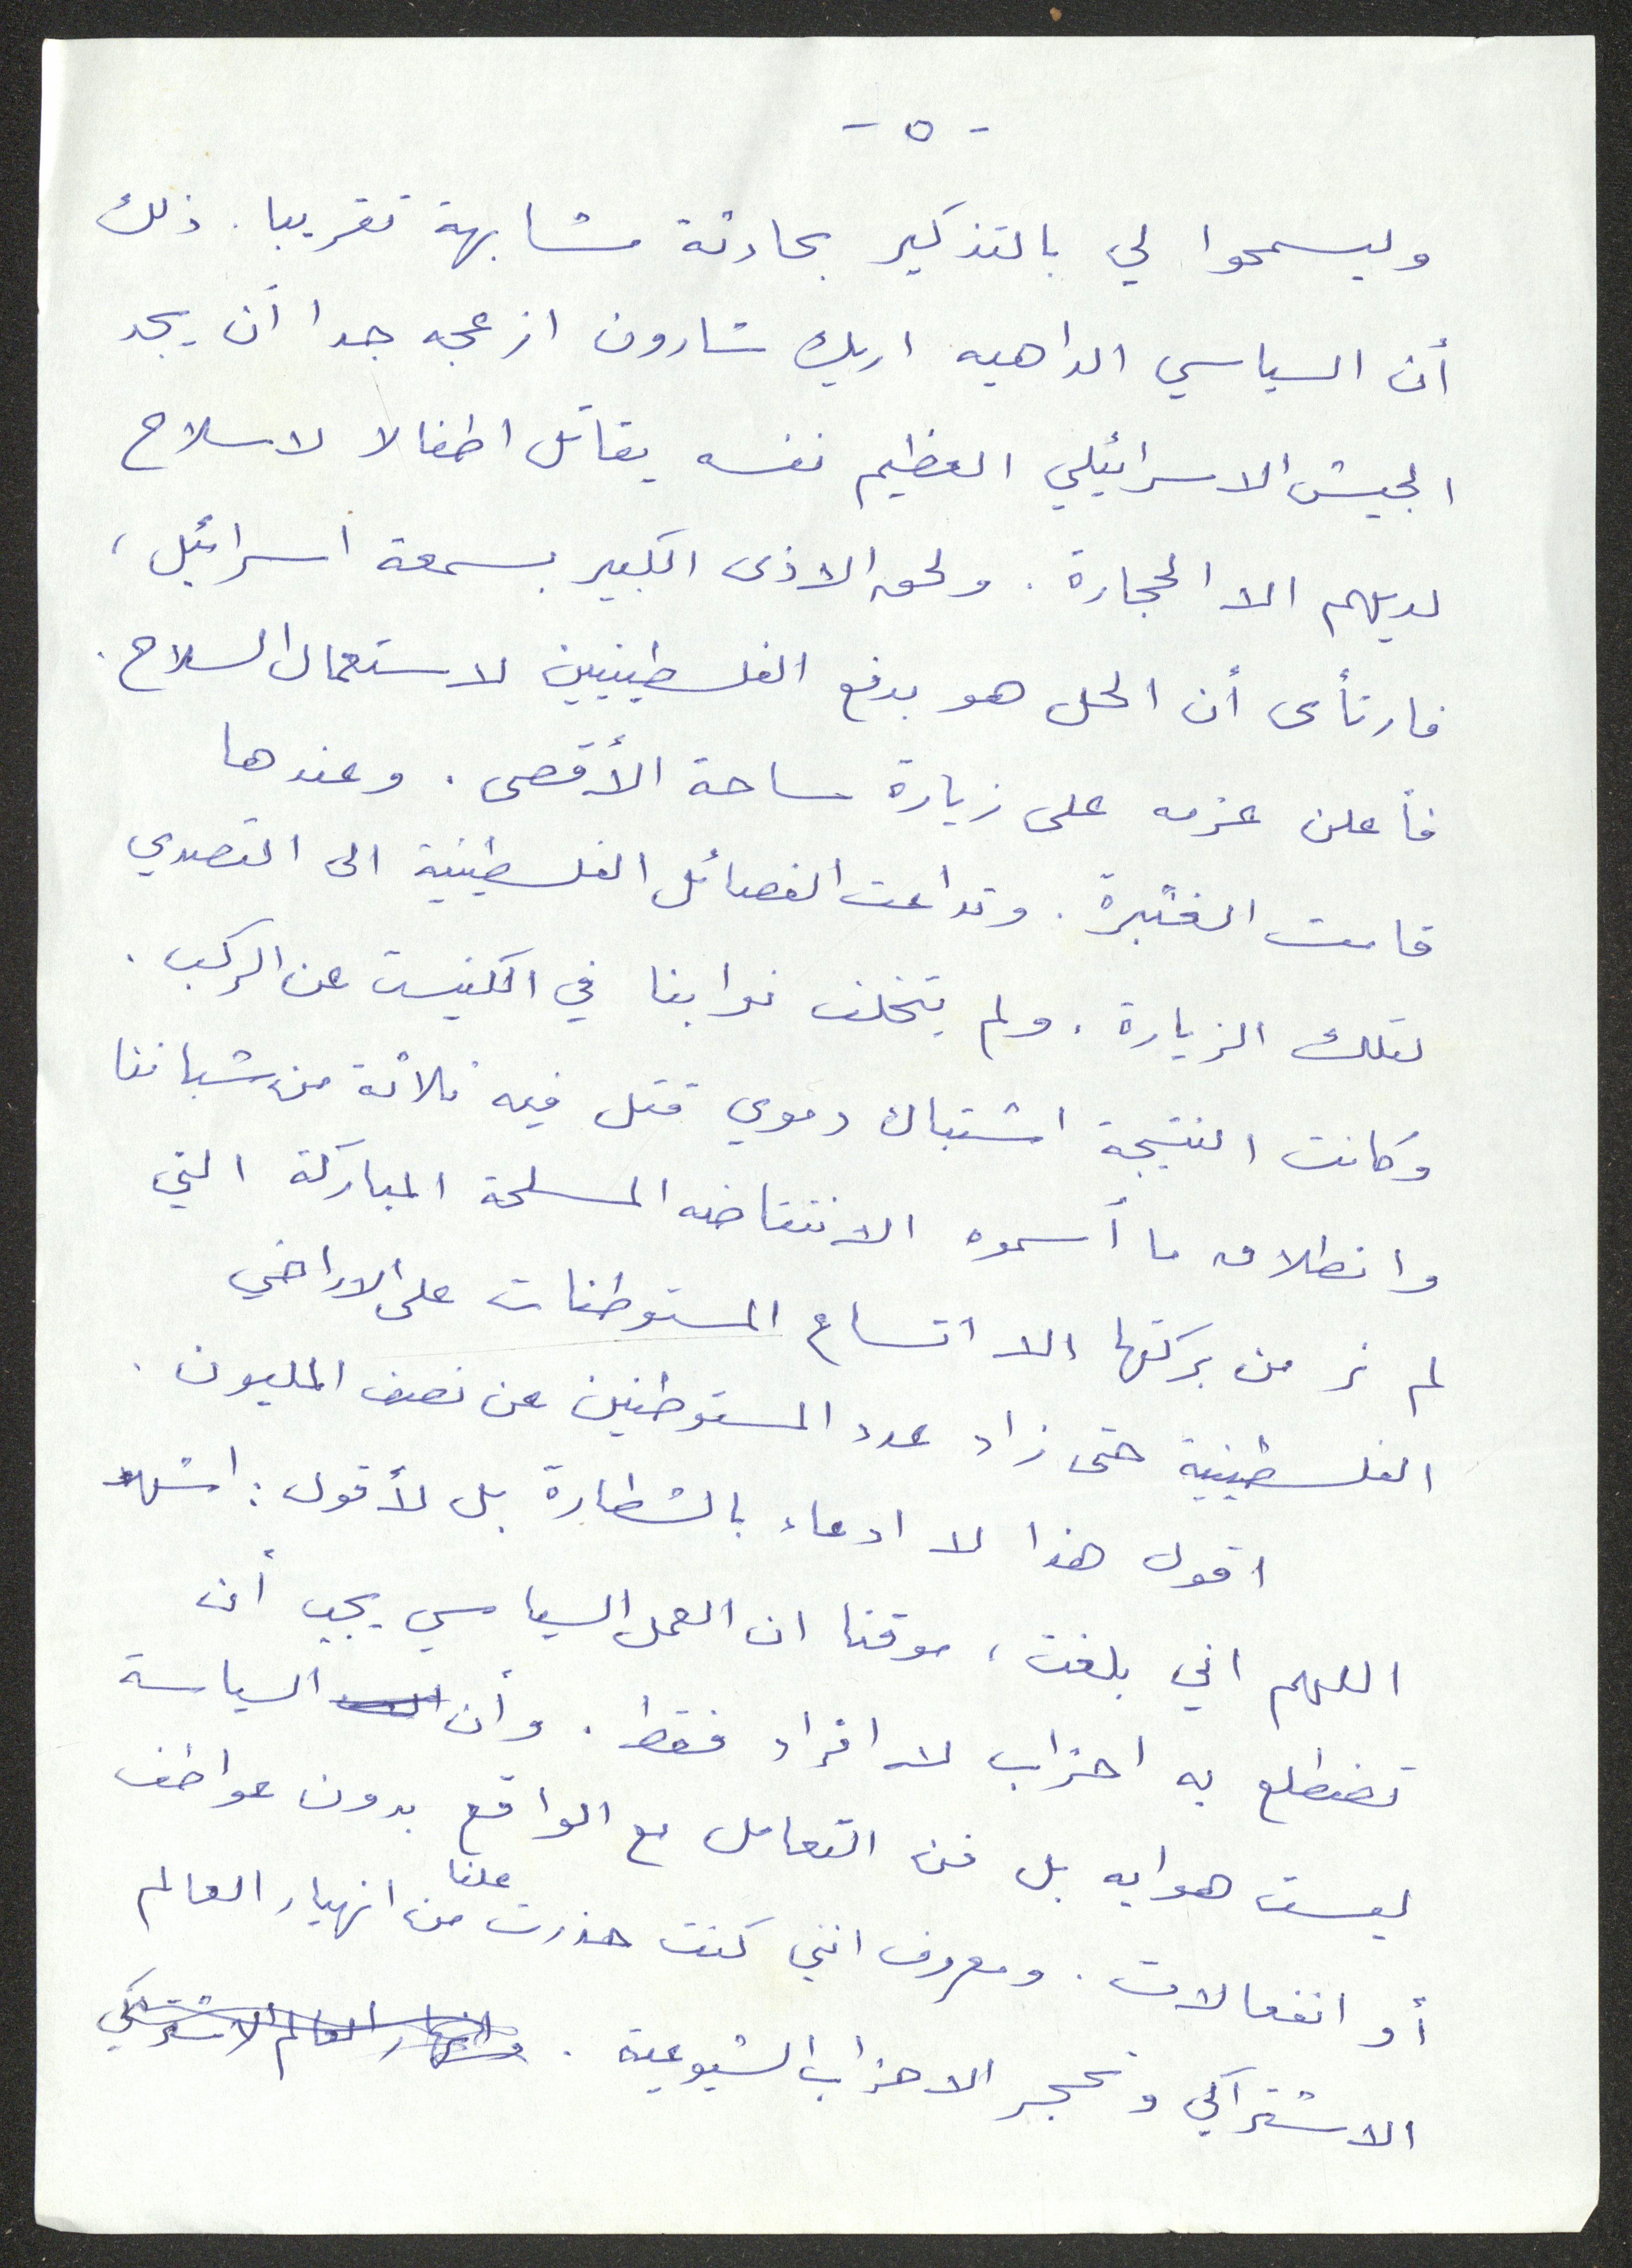 - ٥ -
وليسمحوا لي بالتذكير بحادثة مشابهة تقريبا. ذلك
أن السياسي الداهيه اريك شارون ازعجه جدا أن يجد
الجيش الاسرائيلي العظيم نفسه يقاتل اطفالا لا سلاح
لديهم الا الحجارة. ولحق الاذى الكبير بسمعة اسرائيل،
فارتأى أن الحل هو بدفع الفلسطينيين لاستعمال السلاح.
فأعلن عزمه على زيارة ساحة الأقصى. وعندها
قامت الغبرة. وتداعت الفصائل الفلسطينية الى التصدي
لتلك الزيارة. ولم يتخلف نوابنا في الكنيست عن الركب.
وكانت النتيجة اشتباك دموي قتل فيه ثلاثة من شباننا
وانطلاق ما أسموه الانتفاضه المسلحة المباركة التي
لم نر من بركتها الا اتساع المستوطنات على الاراضي
الفلسطينية حتى زاد عدد المستوطنين عن نصف المليون.
اقول هذا لا ادعاء بالشطارة بل لأقول: اشهد
اللهم اني بلغت، موقنا ان العمل السياسي يجب أن
تضطلع به احزاب لا افراد فقط. وأن السياسة
ليست هوايه بل فن التعامل مع الواقع بدون عواطف
أو انفعالات. ومعروف انني كنت حذرت علنا من انهيار العالم
الاشتراكي وتحجر الاحزاب الشيوعية. وانهيار العالم الاشتراكي